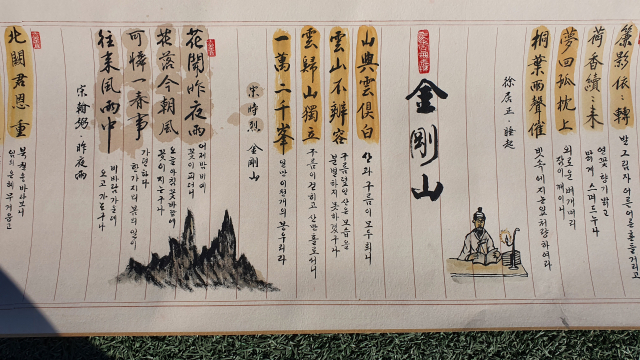 簾影依:轉
발 그림자 어른어른
荷香續:來
연꽃 향기 밝고
밝게 스며드누나
夢回孤枕上
외로운 베개머리
잠이 깨이니
桐葉雨聲催
빗속에 지는 잎 처량하여라
徐居正·睡起
金剛山
山與雲俱白
산과 구름이 모두 희니
雲山不辨容
구름 산은 모습을
분별하지 못하겠구나
雲歸山獨立
구름이 걷히고 산만 홀로 서니
一萬二千峯
일만 이천 개의 봉우리라
宋時烈 金剛山
花開昨夜雨
어제 밤 비에
꽃이 피더니
花落今朝風
오늘 아침 꽃바람에
꽃이 지는구나
可憐一春事
가련하다
한가지 더 봄의 일이
往來風雨中
비바람 가운데
오고 가는구나
宋翰弼·昨夜雨
北闕君恩重
북궐을 바라보니
임의 은혜 무거웁고